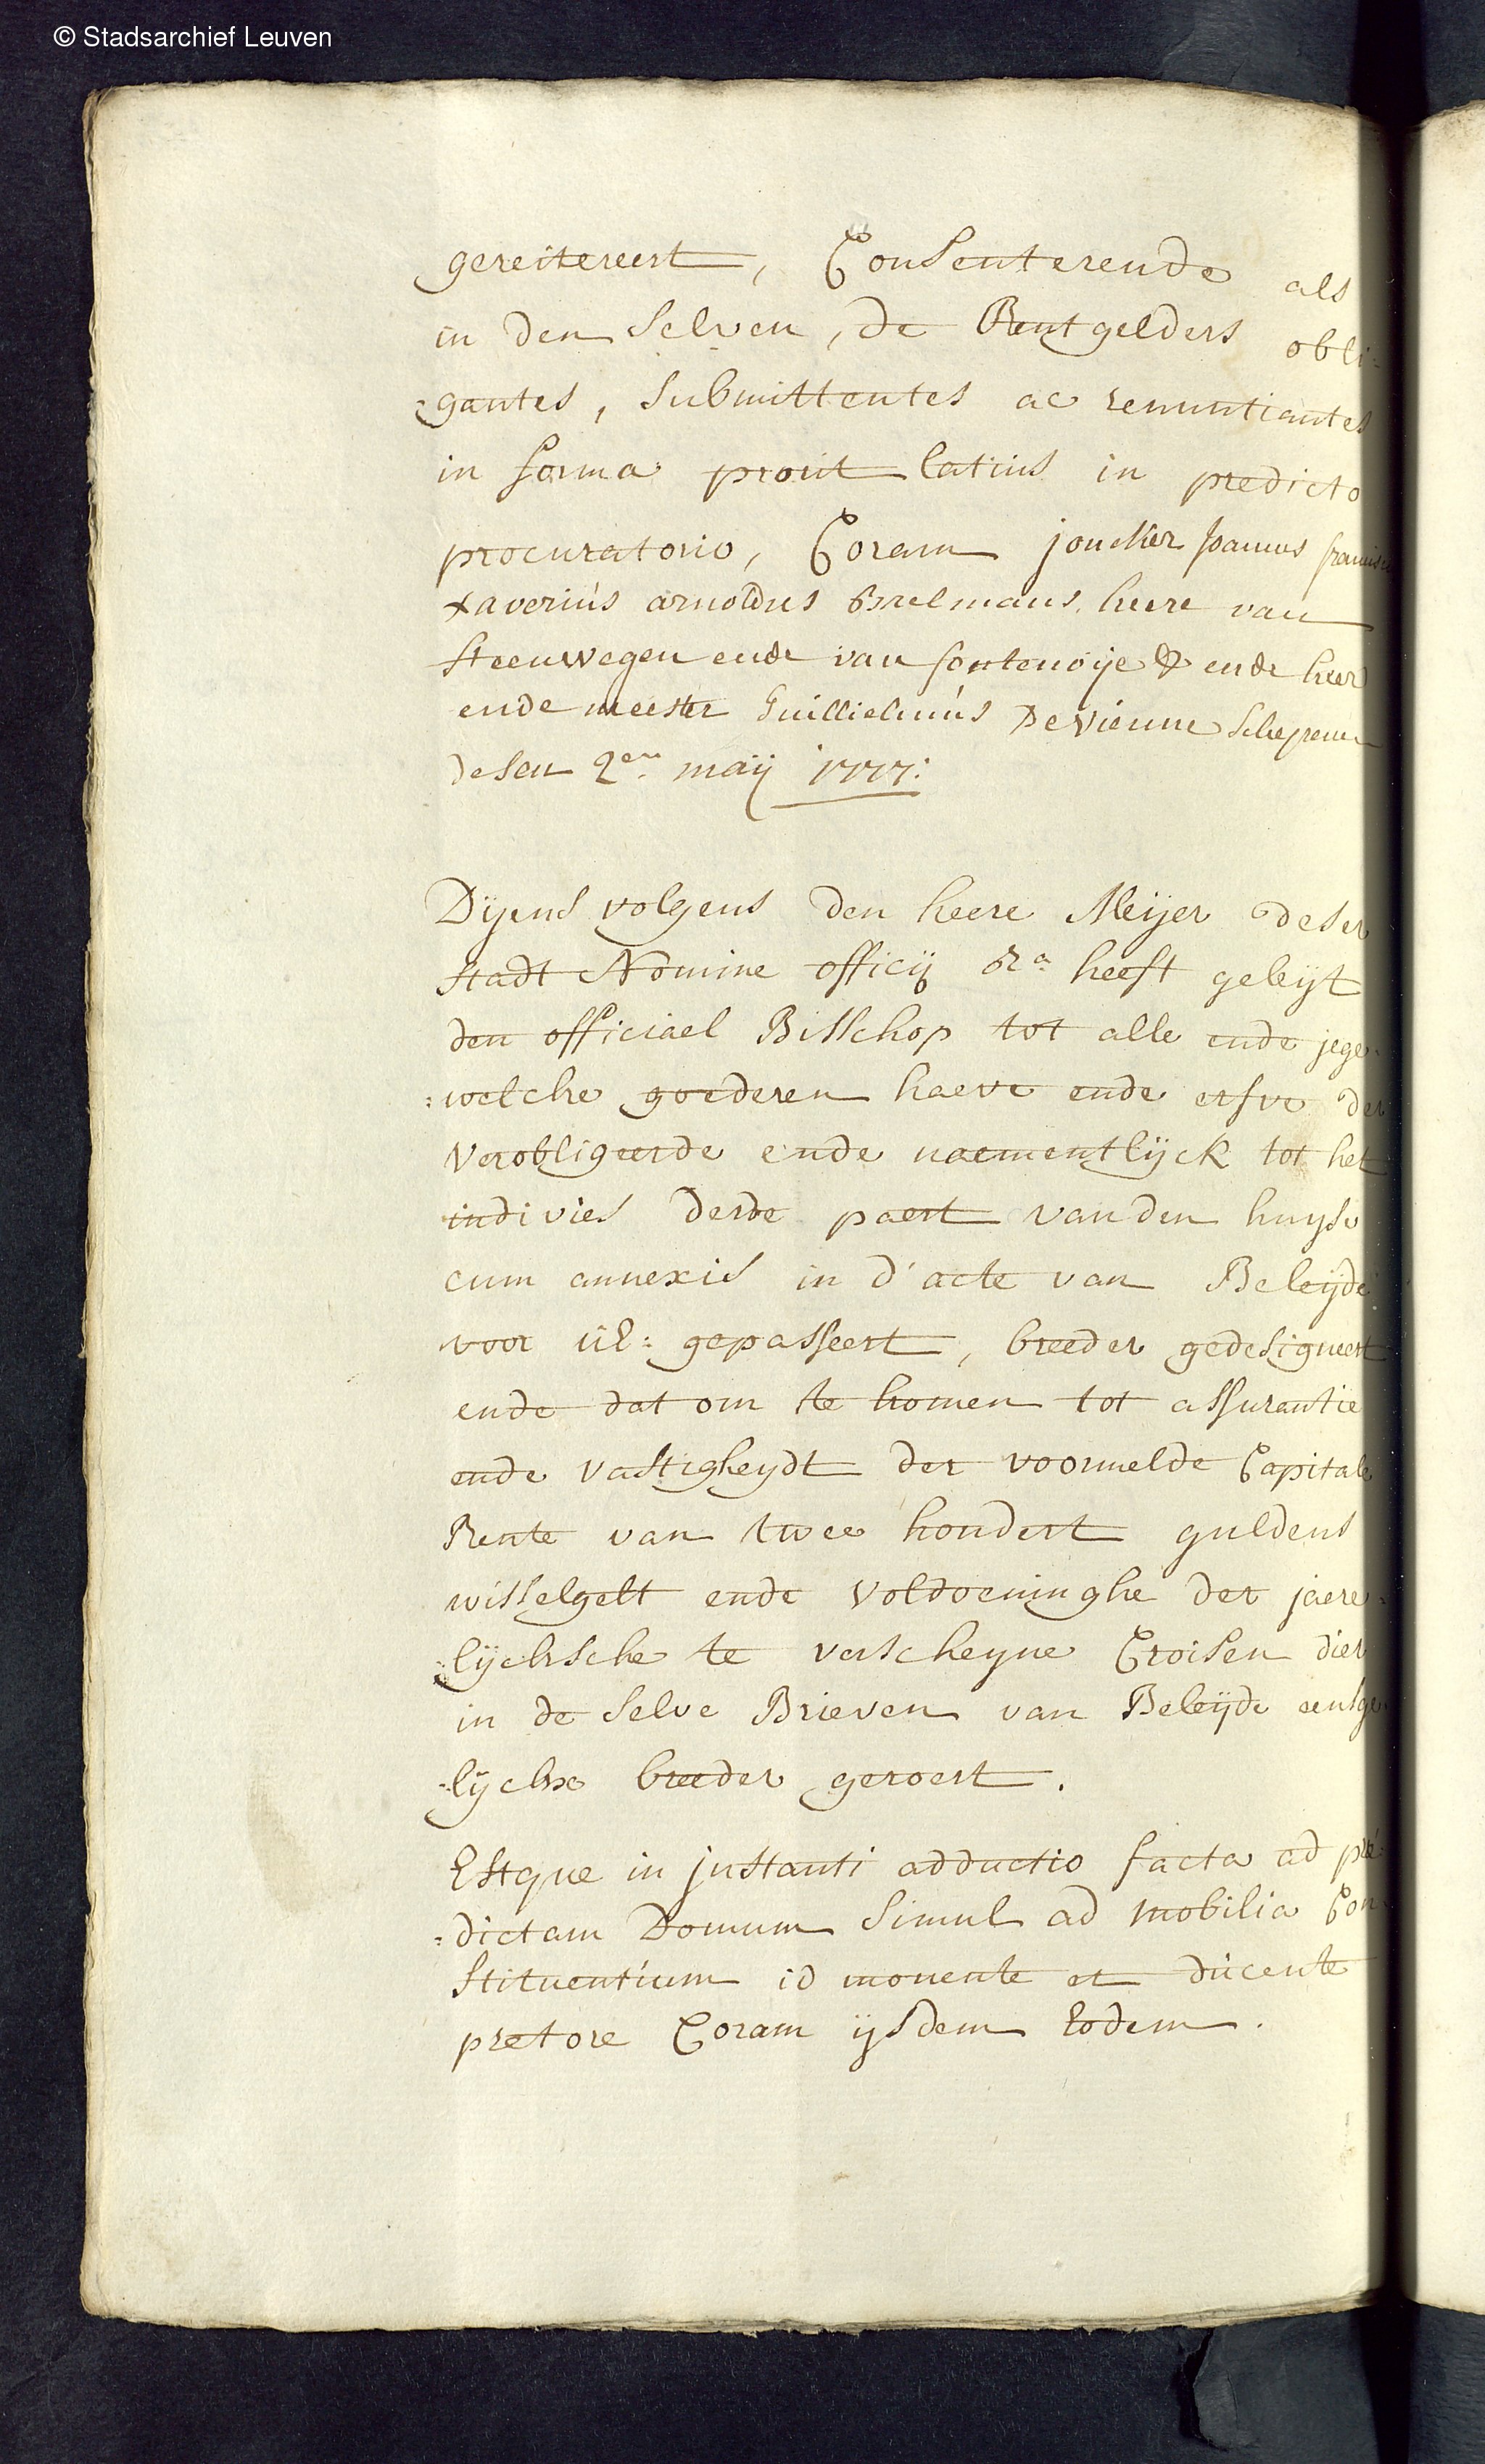 © Stadsarchief Leuven
gereitereert, Consenterende als
in den selven, de Rentgelders obli=
=gantes, submittentes ac renuntiantes
in forma prout latius in predicto
procuratorio, Coram joncker Joannes
xaverius arnoldus heere van
steenwegen ende van fontenoije & ende heer
ende meester Guillielmus De Vienne schepenen
desen 2en maij 1777:
Dijens volgens den heere Meijer deser
stadt Nomine officij &ra heeft geleijt
den officiael Bisschop tot alle ende jege=
=welcke goederen haeve ende erfve der
verobligeerde ende naementlijck tot het
indivies derde paert van den huyse
cum annexis in d'acte van Beleijde
voor ul: gepasseert, breeder gedesigneert
ende dat om te komen tot assurantie
ende vastigheydt der voormelde Capitale
Rente van twee hondert guldens
wisselgelt ende voldoeninghe der jaere=
=lijcksche te verscheyne Croisen dier
in de selve Brieven van Beleijde eensge=
=lijckx breeder geroert.
Estque in justanti adductio facta ad pre=
=dictam Domum simul ad mobilia Con=
stituentium id monente et ducente
pretore Coram ijsdem Eodem.